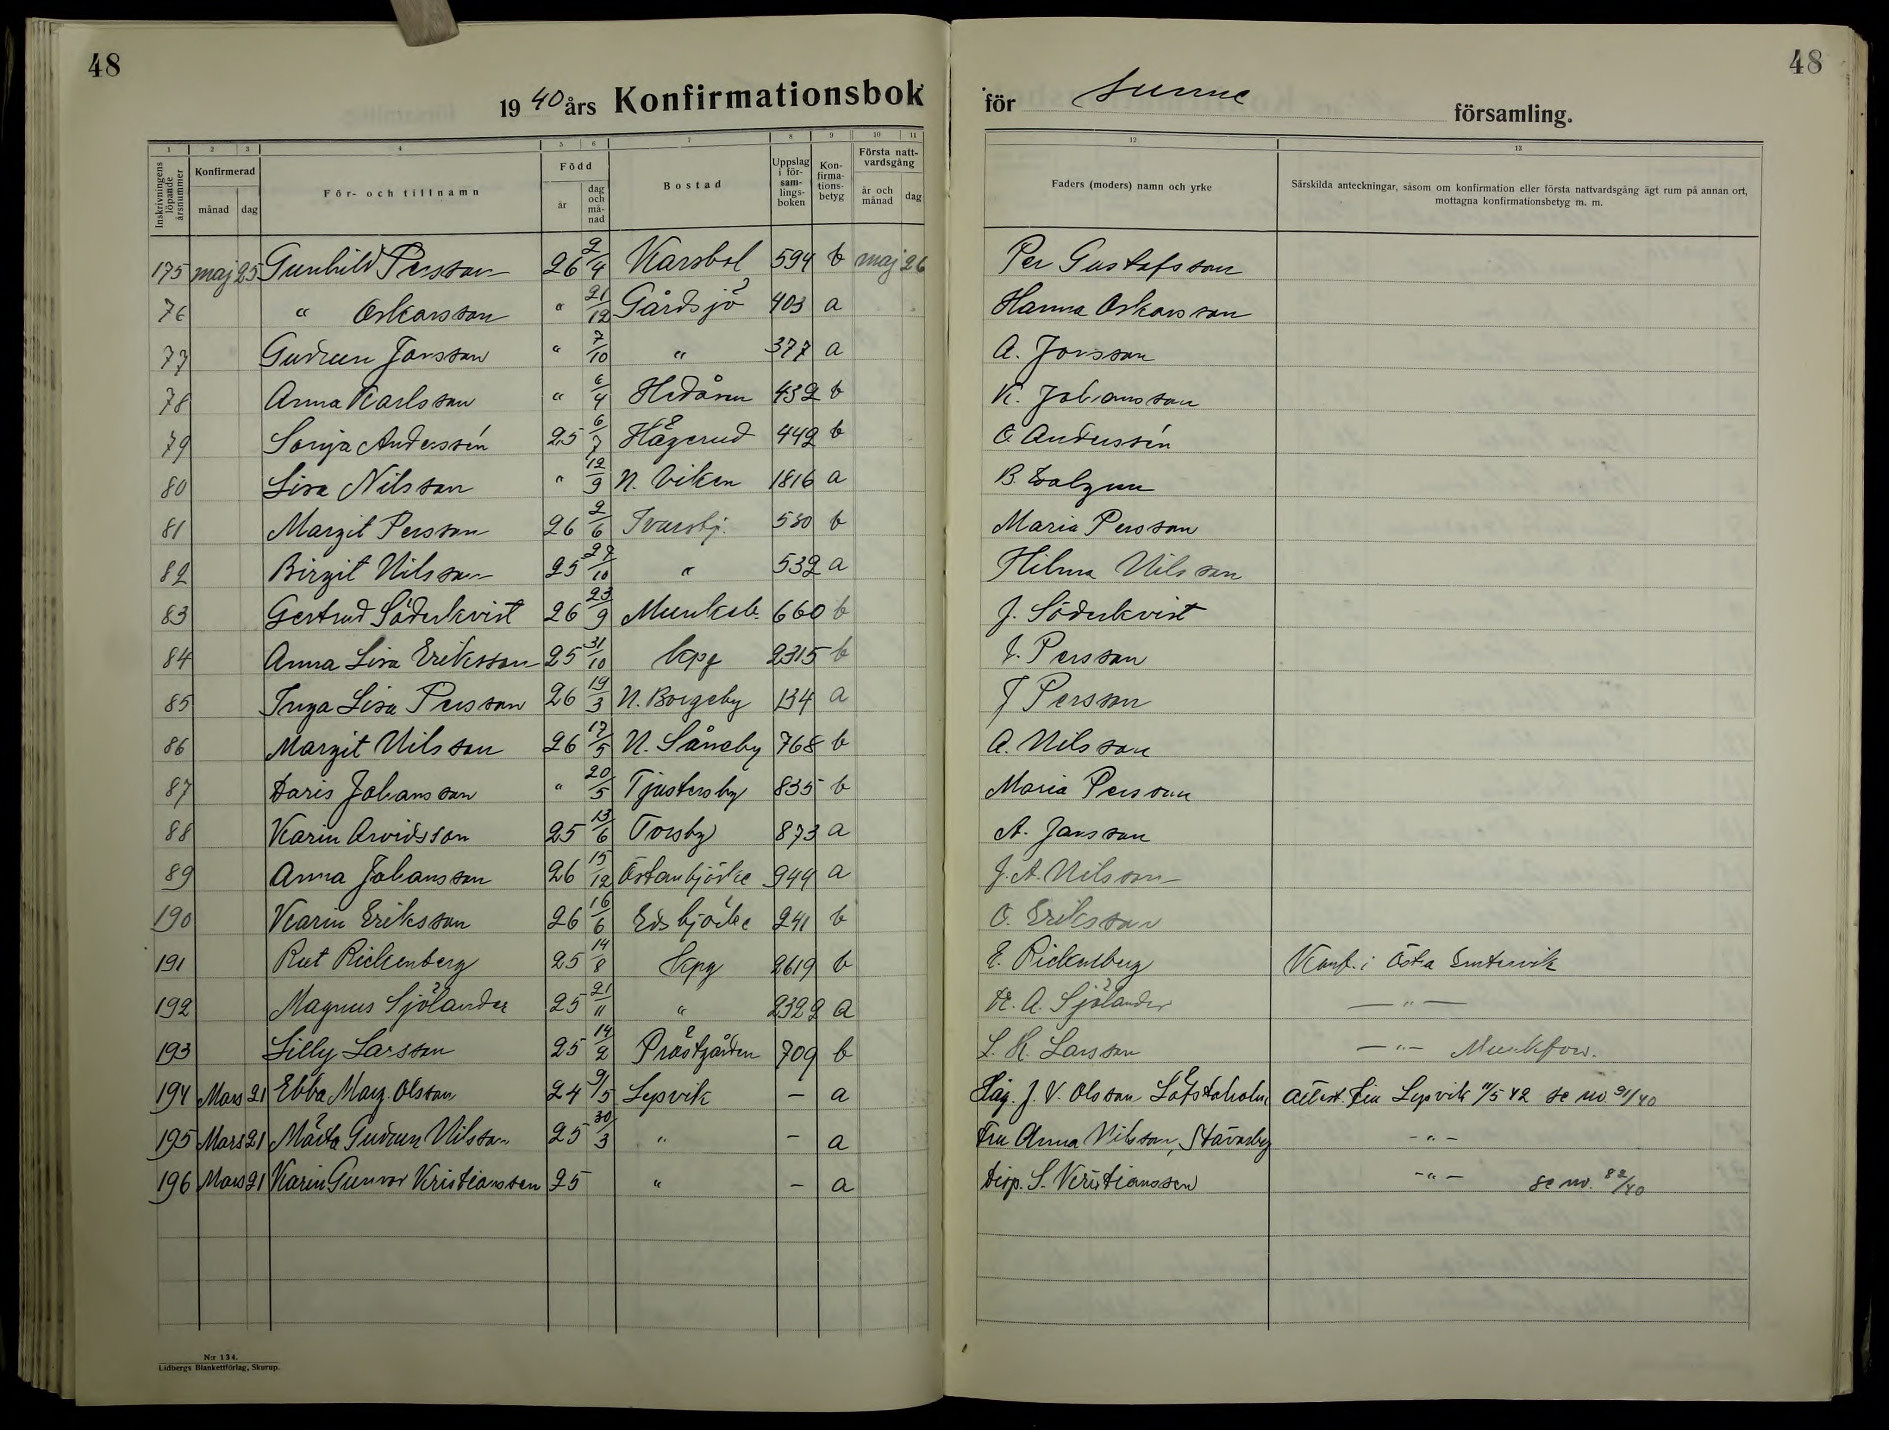 48
48
1940 års Konfirmationsbok för Sunne församling.
1 2 3 4 5 6 7 8 9 10 11 12 13
Inskrivningens löpande årsnummer
Konfirmerad
månad dag
För- och tillnamn
Född
år dag och månad
Bostad
Uppslag i församlingsboken
Konfirmationsbetyg
Första nattvardsgång
år och månad dag
Faders (moders) namn och yrke
Särskilda anteckningar, såsom om konfirmation eller första nattvardsgång ägt rum på annan ort, mottagna konfirmationsbetyg m. m.
175 maj 25 Gunhild Persson 26 2/4 Karsbol 594 b maj 26 Per Gustafsson
76 " Oskarsson " 21/12 Gårdsjö 403 a Hanna Oskarsson
77 Gudrun Jonsson " 7/10 " 377 a A. Jonsson
78 Anna Karlsson " 6/4 Hedåsen 432 b K. Johansson
79 Sonja Anderssén 25 6/7 Hågerud 442 b O Anderssén
80 Lisa Nilsson " 12/9 N. Viken 1816 a B.
81 Margit Persson 26 2/6 Ivarsbj. 530 b Maria Persson
82 Birgit Nilsson 25 27/10 " 532 a Hilma Nilsson
83 Gertrud Söderkvist 26 23/9 Munkeb. 660 b J. Söderkvist
84 Anna Lisa Eriksson 25 31/10 kpg 2315 b J. Persson
85 Inga Lisa Persson 26 19/3 N. Borgeby 134 a J Persson
86 Margit Nilsson 26 17/5 N. Såneby 768 b A. Nilsson
87 Doris Johansson " 20/5 Tjustersby 835 b Maria Persson
88 Karin Arvidsson 25 13/6 Torsby 873 a A. Jansson
89 Anna Johansson 26 15/12 Östanbjörke 949 a J. A. Nilsson
190 Karin Eriksson 26 16/6 Edsbjörke 241 b O. Eriksson
191 Rut Rickenberg 25 14/8 kpg 2619 b E. Rickenberg Konf. i Östra Emtervik
192 Magnus Sjölander 25 21/11 " 2322 a K. A. Sjölander — " —
193 Lilly Larsson 25 14/2 Prästgården 709 b L. K. Larsson — " — Munkfors.
194 Mars 21 Ebba Marg. Olsson 24 9/5 Lysvik – a Häg. J. V. Olsson Löfstaholm attest. fin Lysvik 11/5 42 se no. 91/40
195 Mars 21 Märta Gudrun Nilsson 25 30/3 " – a Fru Anna Nilsson, Stävarby – " –
196 Mars 21 Karin Gunvor Kristianssen 25 " – a Disp. S. Kristianssen – " – se no. 82/40
N:r 134.
Lidbergs Blankettförlag, Skurup.